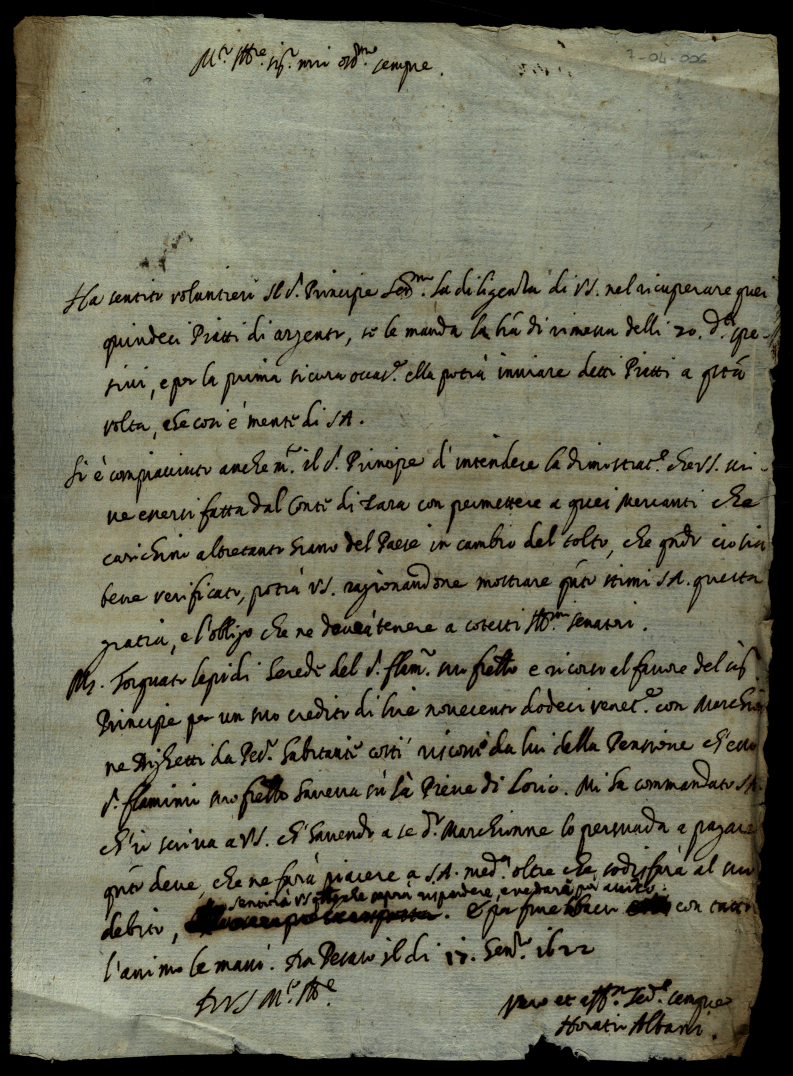 7-04-006
M.to Ill.re sig.r mio oss.mo sempre.
Ha sentito voluntieri il s.r Principe Ser.mo la diligenza di VS. nel ricuperare quei
quindeci Piatti di argento, se le manda la l'ra di rimessa delli 20. d.ti
e per la prima sicura occas.e ella potrà inviare detti Piatti a q'sta
volta, che così è mente di SA.
Si è compiaciuto anche m.to il s.r Principe d'intendere la dimostrat.e che VS. scri-
ve essersi fatta dal Conte di Zara con permettere a quei Mercanti che
carichino altretanto grano del Paese in cambio del tolto, che q'ndo ciò sia
bene verificato, potrà VS. ragionandone mostrare q'nto stimi SA. questa
gratia, e l'obligo che ne deverà tenere a cotesti Ill.mi senatori.
Torquato lepidi herede del s.r flam.o suo f'rello è ricorso al favore del sig.r
Principe per un suo credito di lire novecento dodeci venet.e con Marchio
ne da Ped.o habitante costì riscosse da lui della Pensione ch'esso
s.r flaminio suo f'rello haveva sù la Pieve di Lorio. Mi ha commandato SA.
ch'io scriva a VS. ch'havendo a se d.to Marchionne lo persuada a pagare
q'nto deve, che ne farà piacere a S.A. med.a oltre che sodisfarà al suo
sentirà VS q'llo che saprà rispondere, e ne darà poi aviso.
debito, . E per fine bacio con tutto
l'animo le mani. Da Pesaro il di 17. Gen.o 1622
D VS M.to Ill.re
Vero et aff.mo ser.e sempre
Horatio Albani.